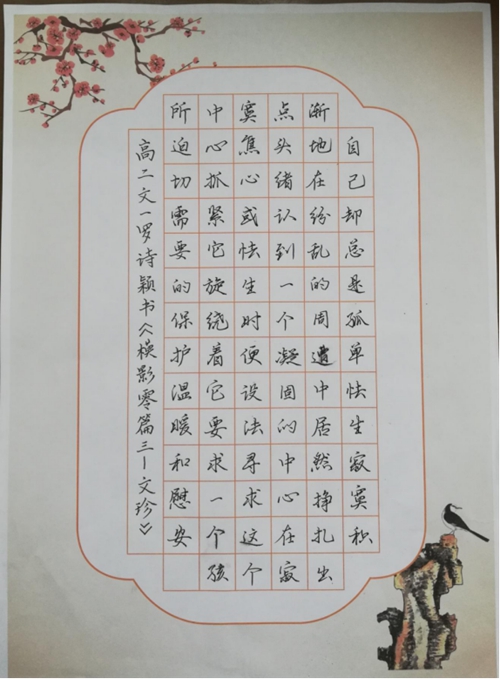 自己却总是孤单怯生寂寞积
渐地在纷乱的周遭中居然挣扎出
点头绪认到一个凝固的中心在寂
寞焦心或怯生时便设法寻求这个
中心抓紧它旋绕着它要求一个孩
所迫切需要的保护温暖和慰安
高二文一罗诗颖书《模影零篇三—文珍》